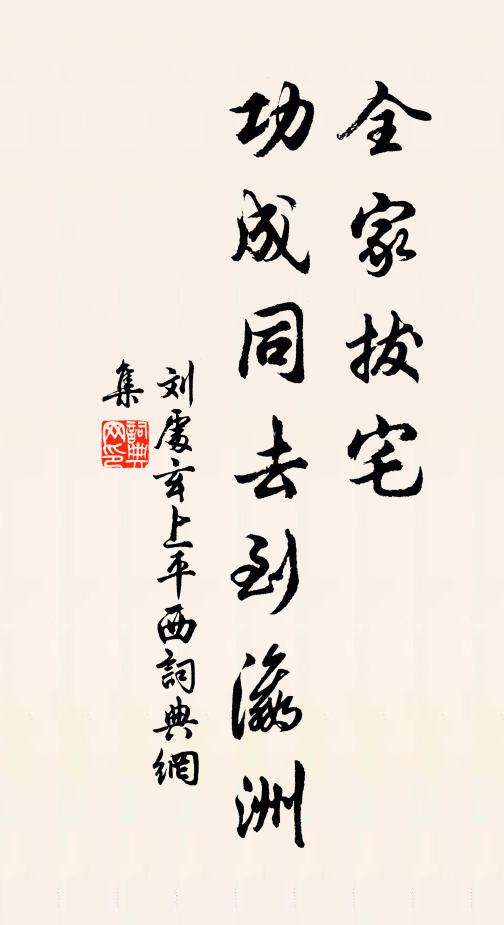 全家拔宅
功成同去到瀛洲
刘處玄上平西詞典網
集
詞典
网印